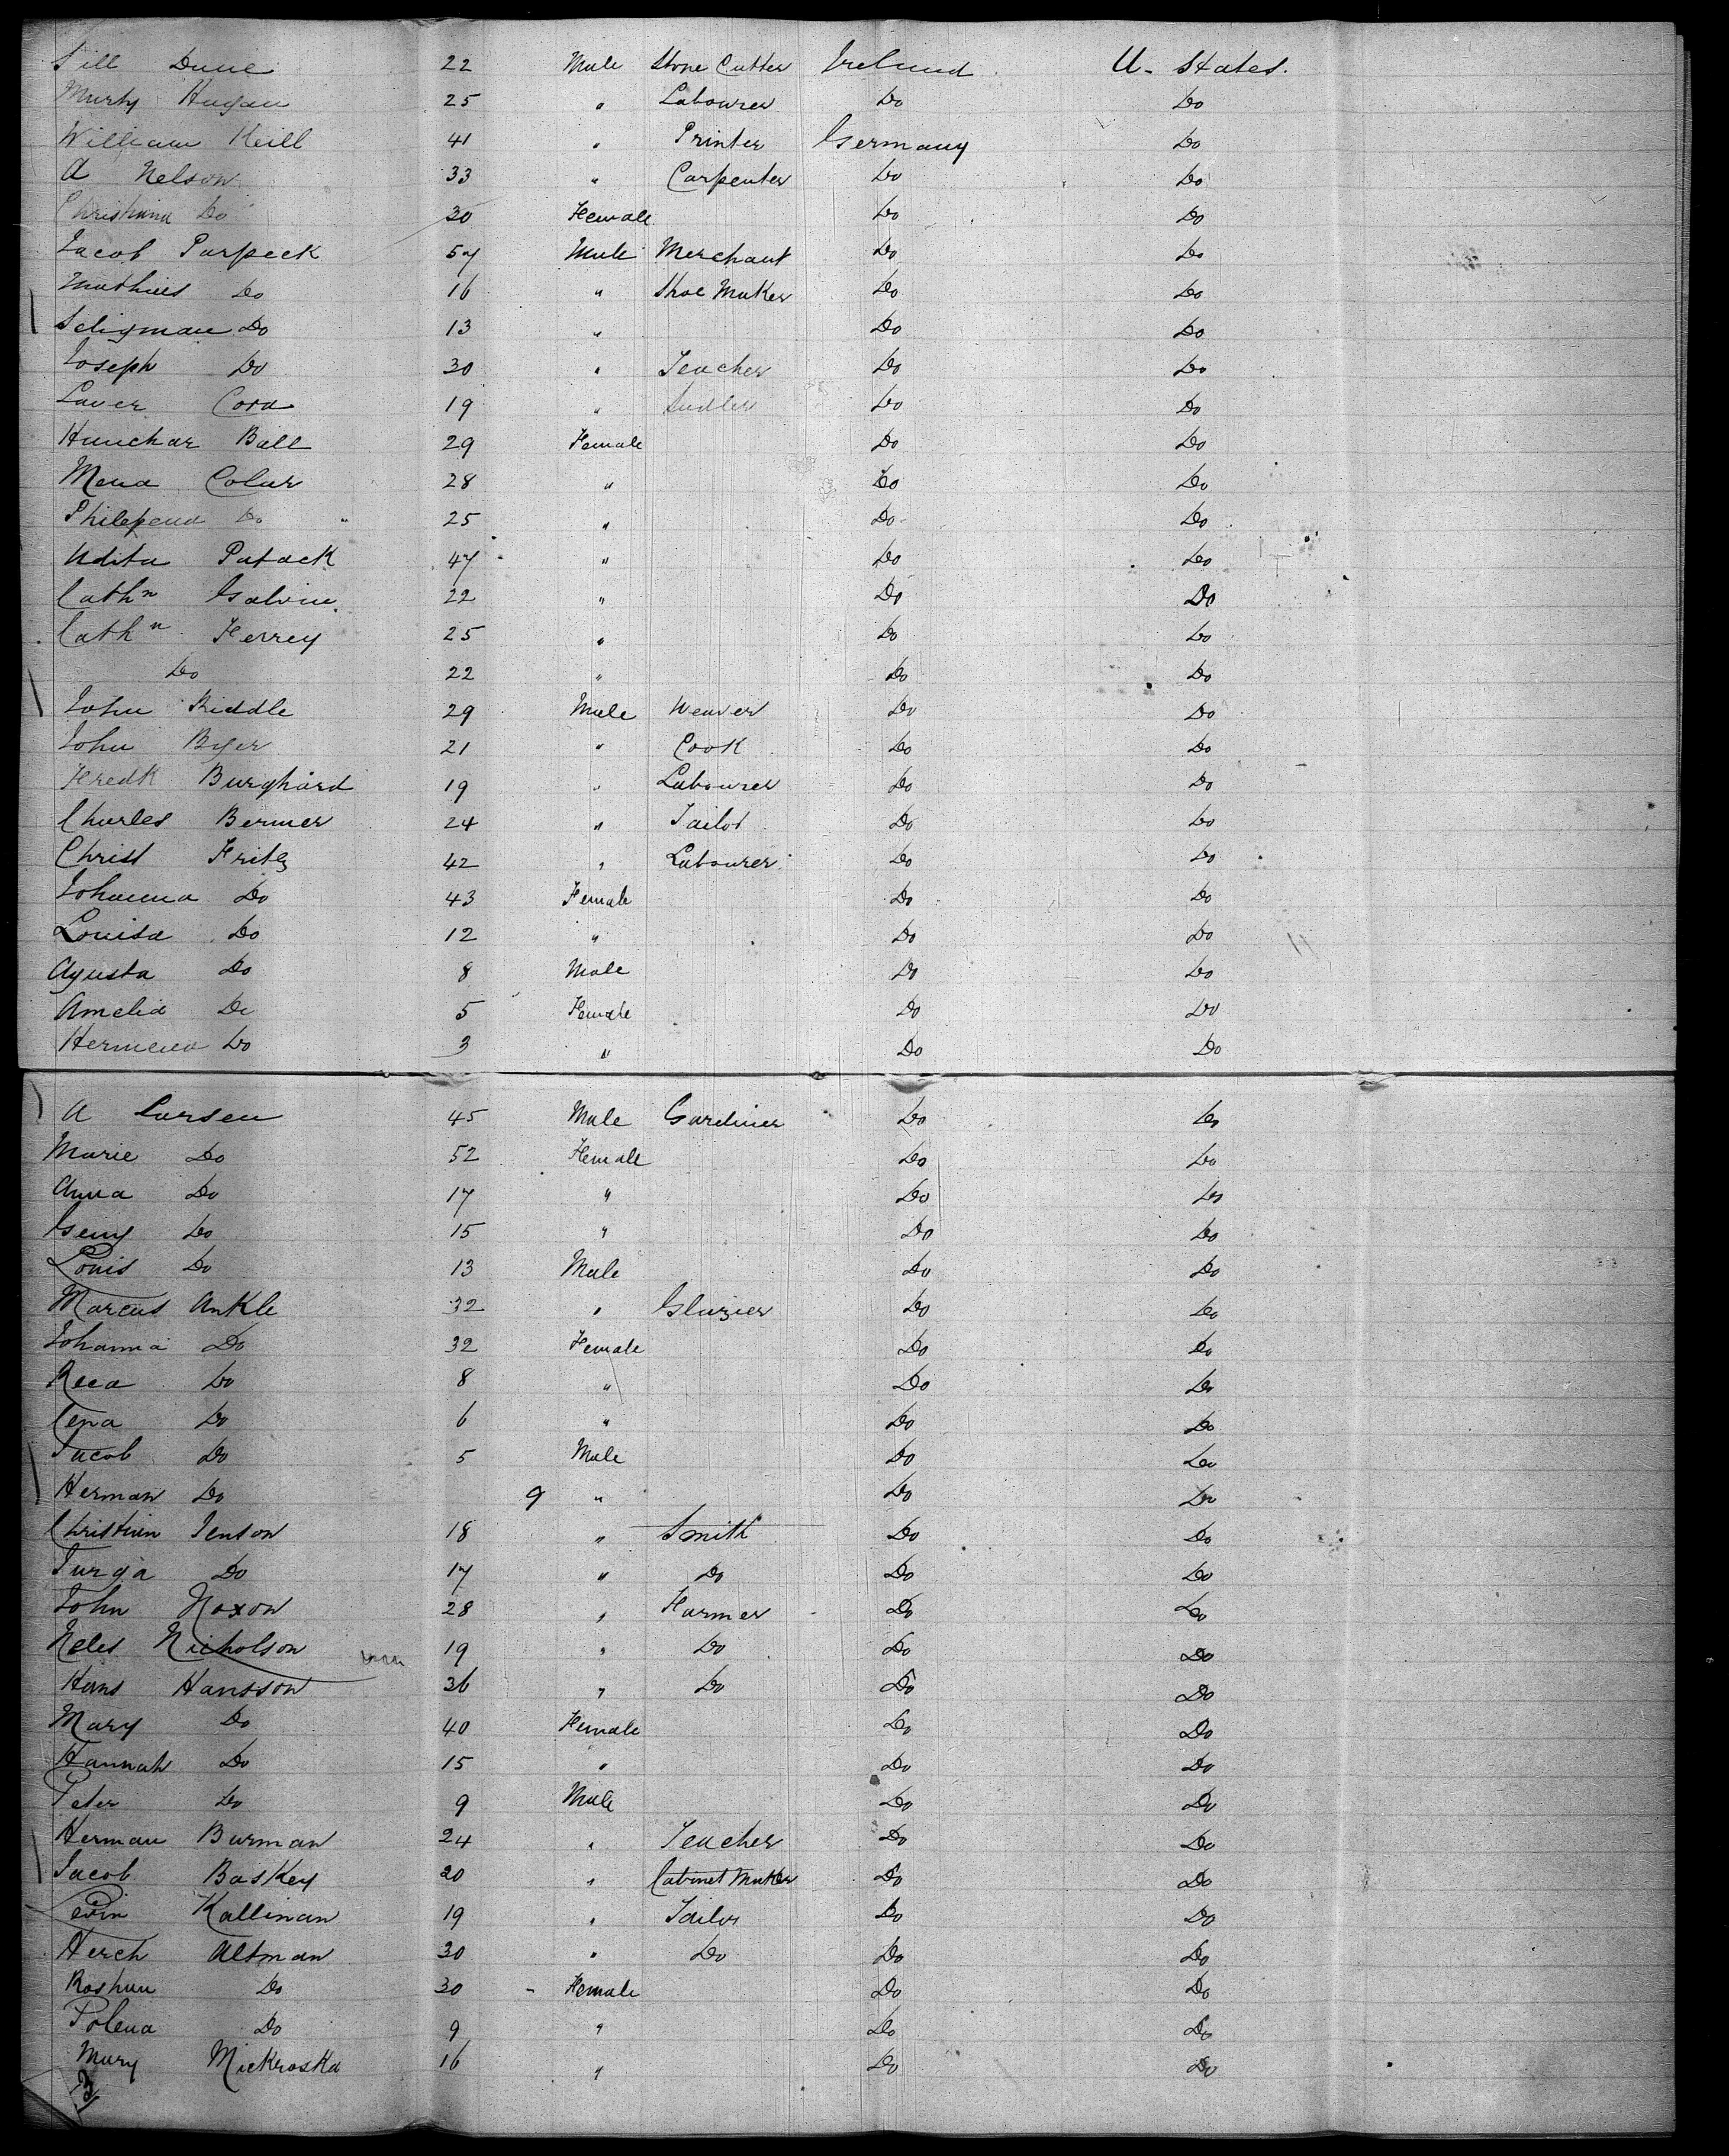 Sill Dune 22 Male Stone Cutter Ireland U. States.
Murty Hugan 25 " Labourer Do Do
William Keill 41 " Printer Germany Do
A Nelson 33 " Carpenter Do Do
Christiana Do 30 Female Do Do
Jacob Parpeck 57 Male Merchant Do Do
Mathies Do 16 " Shoe Maker Do Do
Seligman Do 13 " Do Do
Joseph Do 30 " Teacher Do Do
Laver Cora 19 " Sadler Do Do
Hunchar Ball 29 Female Do Do
Mena Colur 28 " Do Do
Philepena Do " 25 " Do Do
Udita Patack 47 " Do Do
Cathn Galvin 22 " Do Do
Cathn Ferrey 25 " Do Do
Do 22 " Do Do
John Riddle 29 Male Weaver Do Do
John Byer 21 " Cook Do Do
Fredk Burghard 19 " Labourer Do Do
Charles Bermer 24 " Tailor Do Do
Christ Fritz 42 " Labourer Do Do
Johanna Do 43 Female Do Do
Louisa Do 12 " Do Do
Agusta Do 8 Male Do Do
Amelia Do 5 Female Do Do
Hermena Do 3 " Do Do
A Larsen 45 Male Gardiner Do Do
Marie Do 52 Female Do Do
Anna Do 17 " Do Do
Geny Do 15 " Do Do
Louis Do 13 Male Do Do
Marcus Ankle 32 " Glazier Do Do
Johanna Do 32 Female Do Do
Reca Do 8 " Do Do
Cena Do 6 " Do Do
Jacob Do 5 Male Do Do
Herman Do 9 " Do Do
Christian Jenson 18 " Smith Do Do
Turga Do 17 " Do Do Do
John Noxon 28 " Farmer Do Do
Neles Nicholson 19 " Do Do Do
Hans Hansson 36 " Do Do Do
Mary Do 40 Female Do Do
Hannah Do 15 " Do Do
Peter Do 9 Male Do Do
Herman Burman 24 " Teacher Do Do
Jacob Baskey 20 " Cabinet Maker Do Do
Levin Kallinan 19 " Tailor Do Do
Herch Altman 30 " Do Do Do
Roshun Do 30 Female Do Do
Polena Do 9 " Do Do
Mary Mickroska 16 " Do Do
3